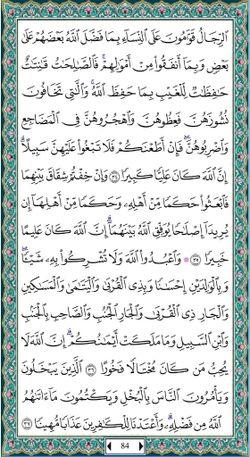 ٱلرِّجَالُ قَوَّٰمُونَ عَلَى ٱلنِّسَآءِ بِمَا فَضَّلَ ٱللَّهُ بَعْضَهُمْ عَلَىٰ
بَعْضٍ وَبِمَآ أَنفَقُوا۟ مِنْ أَمْوَٰلِهِمْ ۚ فَٱلصَّٰلِحَٰتُ قَٰنِتَٰتٌ
حَٰفِظَٰتٌ لِّلْغَيْبِ بِمَا حَفِظَ ٱللَّهُ ۚ وَٱلَّٰتِى تَخَافُونَ
نُشُوزَهُنَّ فَعِظُوهُنَّ وَٱهْجُرُوهُنَّ فِى ٱلْمَضَاجِعِ
وَٱضْرِبُوهُنَّ ۖ فَإِنْ أَطَعْنَكُمْ فَلَا تَبْغُوا۟ عَلَيْهِنَّ سَبِيلًا ۗ
إِنَّ ٱللَّهَ كَانَ عَلِيًّا كَبِيرًا ٣٤ وَإِنْ خِفْتُمْ شِقَاقَ بَيْنِهِمَا
فَٱبْعَثُوا۟ حَكَمًا مِّنْ أَهْلِهِۦ وَحَكَمًا مِّنْ أَهْلِهَآ إِن
يُرِيدَآ إِصْلَٰحًا يُوَفِّقِ ٱللَّهُ بَيْنَهُمَآ ۗ إِنَّ ٱللَّهَ كَانَ عَلِيمًا
خَبِيرًا ٣٥ ۞ وَٱعْبُدُوا۟ ٱللَّهَ وَلَا تُشْرِكُوا۟ بِهِۦ شَيْـًٔا ۖ
وَبِٱلْوَٰلِدَيْنِ إِحْسَٰنًا وَبِذِى ٱلْقُرْبَىٰ وَٱلْيَتَٰمَىٰ وَٱلْمَسَٰكِينِ
وَٱلْجَارِ ذِى ٱلْقُرْبَىٰ وَٱلْجَارِ ٱلْجُنُبِ وَٱلصَّاحِبِ بِٱلْجَنۢبِ
وَٱبْنِ ٱلسَّبِيلِ وَمَا مَلَكَتْ أَيْمَٰنُكُمْ ۗ إِنَّ ٱللَّهَ لَا
يُحِبُّ مَن كَانَ مُخْتَالًا فَخُورًا ٣٦ ٱلَّذِينَ يَبْخَلُونَ
وَيَأْمُرُونَ ٱلنَّاسَ بِٱلْبُخْلِ وَيَكْتُمُونَ مَآ ءَاتَىٰهُمُ
ٱللَّهُ مِن فَضْلِهِۦ ۗ وَأَعْتَدْنَا لِلْكَٰفِرِينَ عَذَابًا مُّهِينًا ٣٧
84